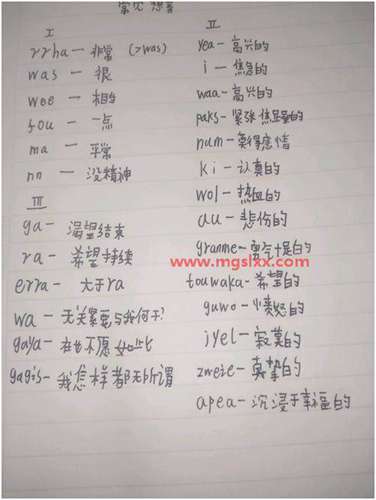 常见 想音
I
rrha — 非常 (>was)
was — 很
wee — 相当
fou — 一点
ma — 平常
nn — 没精神
III
ga — 渴望结束
ra — 希望持续
erra — 大于ra
wa — 无关紧要与我何干?
gaya — 在也不愿如此
gagis — 我怎样都无所谓
II
yea — 高兴的
i — 焦急的
waa — 高兴的
paks — 紧张焦虑的
num — 莫得感情
ki — 认真的
wol — 热血的
au — 悲伤的
granme — 勇气十足的
touwaka — 希望的
guwo — 愤怒的
jyel — 寂寞的
zweie — 真挚的
apea — 沉浸于幸福的
www.mgslxx.com